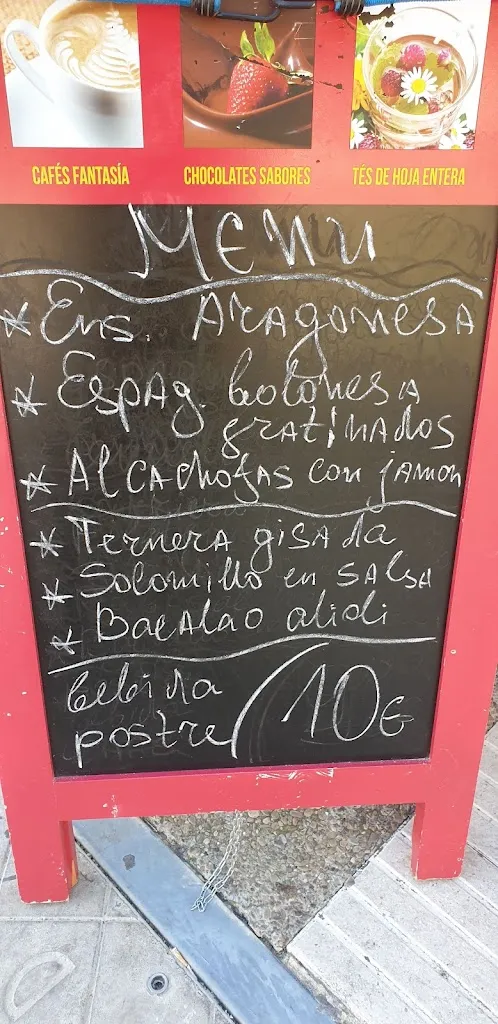 CAFÉS FANTASÍA
CHOCOLATES SABORES
TÉS DE HOJA ENTERA
MENU
* Ens. ARAgonesA
* EspAg. boloñesA
gratinados
* AlcAchofas con jAmon
* TernerA gisada
* Solomillo en sAlsA
* BacAlao alidi
bebida
postre / 10€